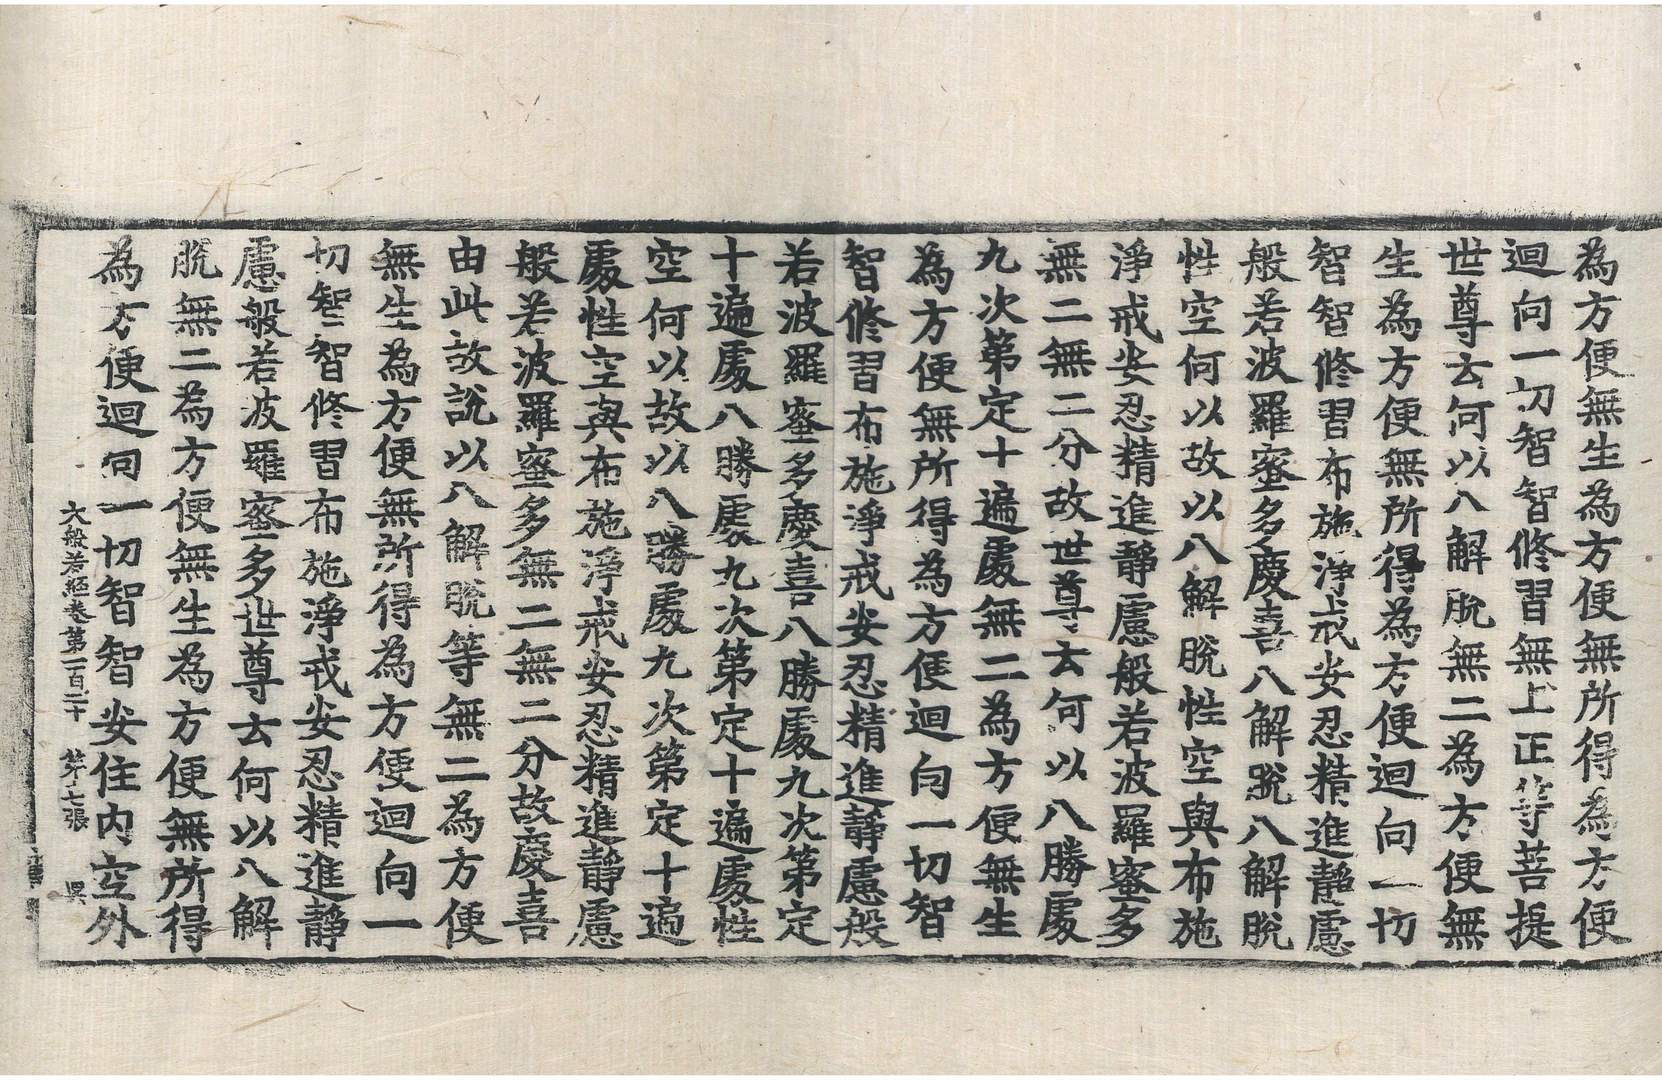 為方便無生為方便無所得為方便
迴向一切智智修習無上正等菩提
世尊云何以八解脫無二為方便無
生為方便無所得為方便迴向一切
智智修習布施淨戒安忍精進靜慮
般若波羅蜜多慶喜八解脫八解脫
性空何以故以八解脫性空與布施
淨戒安忍精進靜慮般若波羅蜜多
無二無二分故世尊云何以八勝處
九次第定十遍處無二為方便無生
為方便無所得為方便迴向一切智
智修習布施淨戒安忍精進靜慮般
若波羅蜜多慶喜八勝處九次第定
十遍處八勝處九次第定十遍處性
空何以故以八勝處九次第定十遍
處性空與布施淨戒安忍精進靜慮
般若波羅蜜多無二無二分故慶喜
由此故說以八解脫等無二為方便
無生為方便無所得為方便迴向一
切智智修習布施淨戒安忍精進靜
慮般若波羅蜜多世尊云何以八解
脫無二為方便無生為方便無所得
為方便迴向一切智智安住內空外
大般若經卷第一百二十　第七張　吳